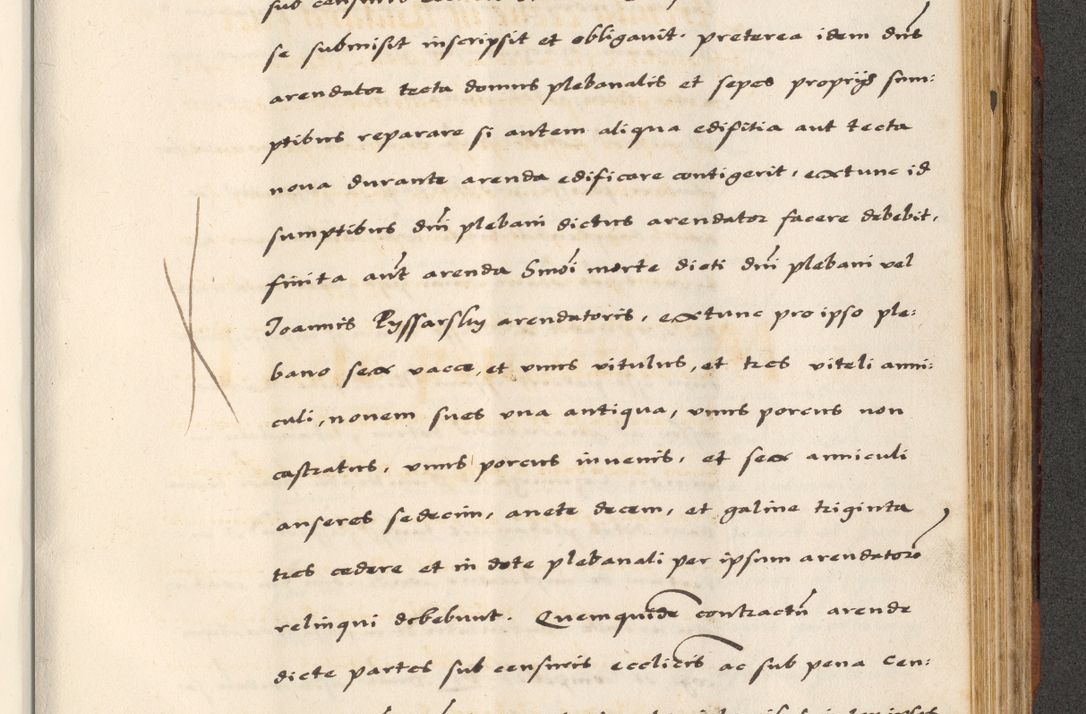 se submisit inscripsit et obligavit. preterea idem dns
arendator tecta domus plebanalis et sepes proprijs sum:
ptibus reparare si autem aliqua edifitia aut tecta
nova durante arenda edificare contigerit, extunc id
sumptibus dni plebani dictus arendator facere debebit,
finita aut arenda morte dicti dni plebani vel
Joannis Ryssarsky arendatoris, extunc pro ipso ple:
bano sex vacce, et unus vitulus, et tres viteli anni:
culi, novem sues una antiqua, unus porcus non
castratus, unus porcus iuvenis, et sex anniculi
anseres sedecim, anete decem, et galine triginta
tres cedere et in dote plebanali per ipsum arendatore
relinqui debebunt. Quemquide contractu arende
dicte partes sub censuris ecclicis ac sub pena cen: